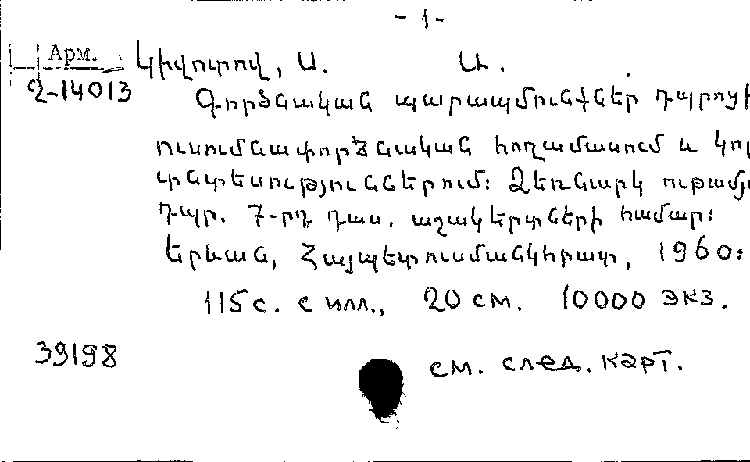 - 1 -
Арм. Կիվոտով, Ա. Ա.
2-14013
Գործնական պարապմունքներ դպրոցի
ուսումնափորձնական հողամասում և կոլ
տնտեսություններում: Ձեռնարկ ութամյա
դպր. 7-րդ դաս. աշակերտների համար:
Երևան, Հայպետուսմանկհրատ, 1960:
115 с. с илл., 20 см. 10000 экз.
39198
см. след. карт.